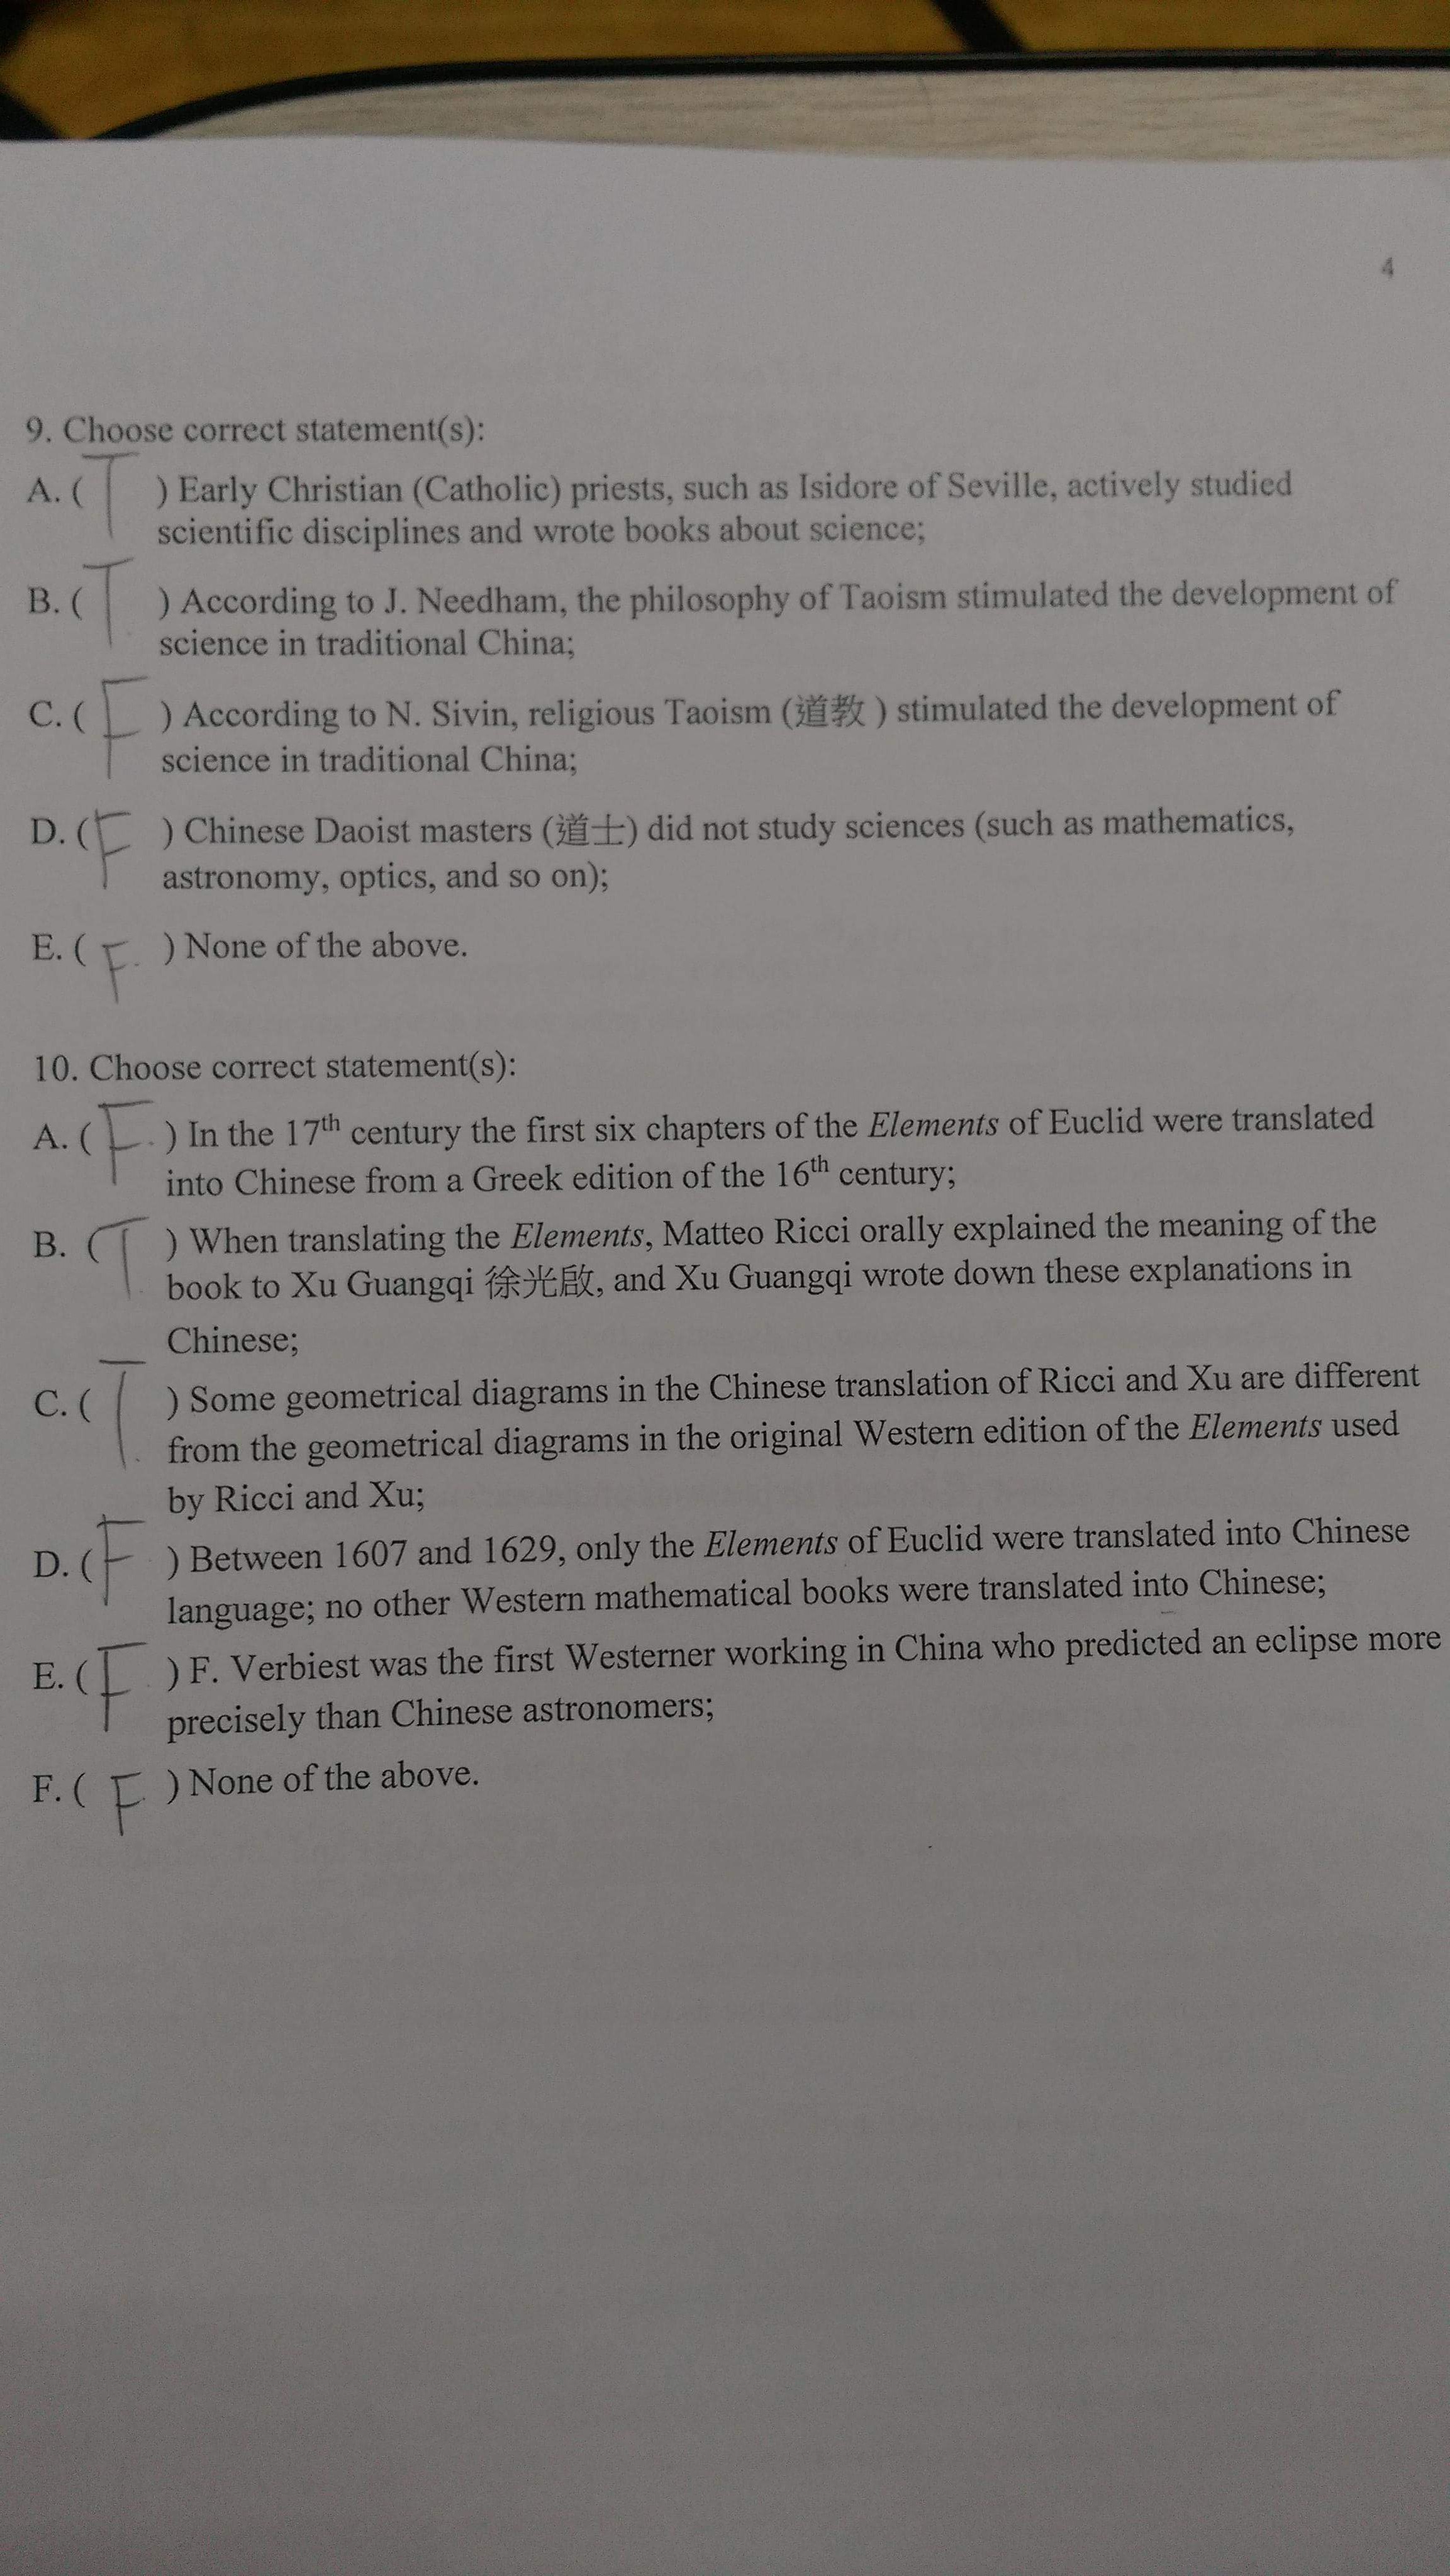 4
9. Choose correct statement(s):
A. ( T ) Early Christian (Catholic) priests, such as Isidore of Seville, actively studied
scientific disciplines and wrote books about science;
B. ( T ) According to J. Needham, the philosophy of Taoism stimulated the development of
science in traditional China;
C. ( F ) According to N. Sivin, religious Taoism (道教 ) stimulated the development of
science in traditional China;
D. ( F ) Chinese Daoist masters (道士) did not study sciences (such as mathematics,
astronomy, optics, and so on);
E. ( F ) None of the above.
10. Choose correct statement(s):
A. ( F ) In the 17th century the first six chapters of the Elements of Euclid were translated
into Chinese from a Greek edition of the 16th century;
B. ( T ) When translating the Elements, Matteo Ricci orally explained the meaning of the
book to Xu Guangqi 徐光啟, and Xu Guangqi wrote down these explanations in
Chinese;
C. ( T ) Some geometrical diagrams in the Chinese translation of Ricci and Xu are different
from the geometrical diagrams in the original Western edition of the Elements used
by Ricci and Xu;
D. ( F ) Between 1607 and 1629, only the Elements of Euclid were translated into Chinese
language; no other Western mathematical books were translated into Chinese;
E. ( F ) F. Verbiest was the first Westerner working in China who predicted an eclipse more
precisely than Chinese astronomers;
F. ( F ) None of the above.